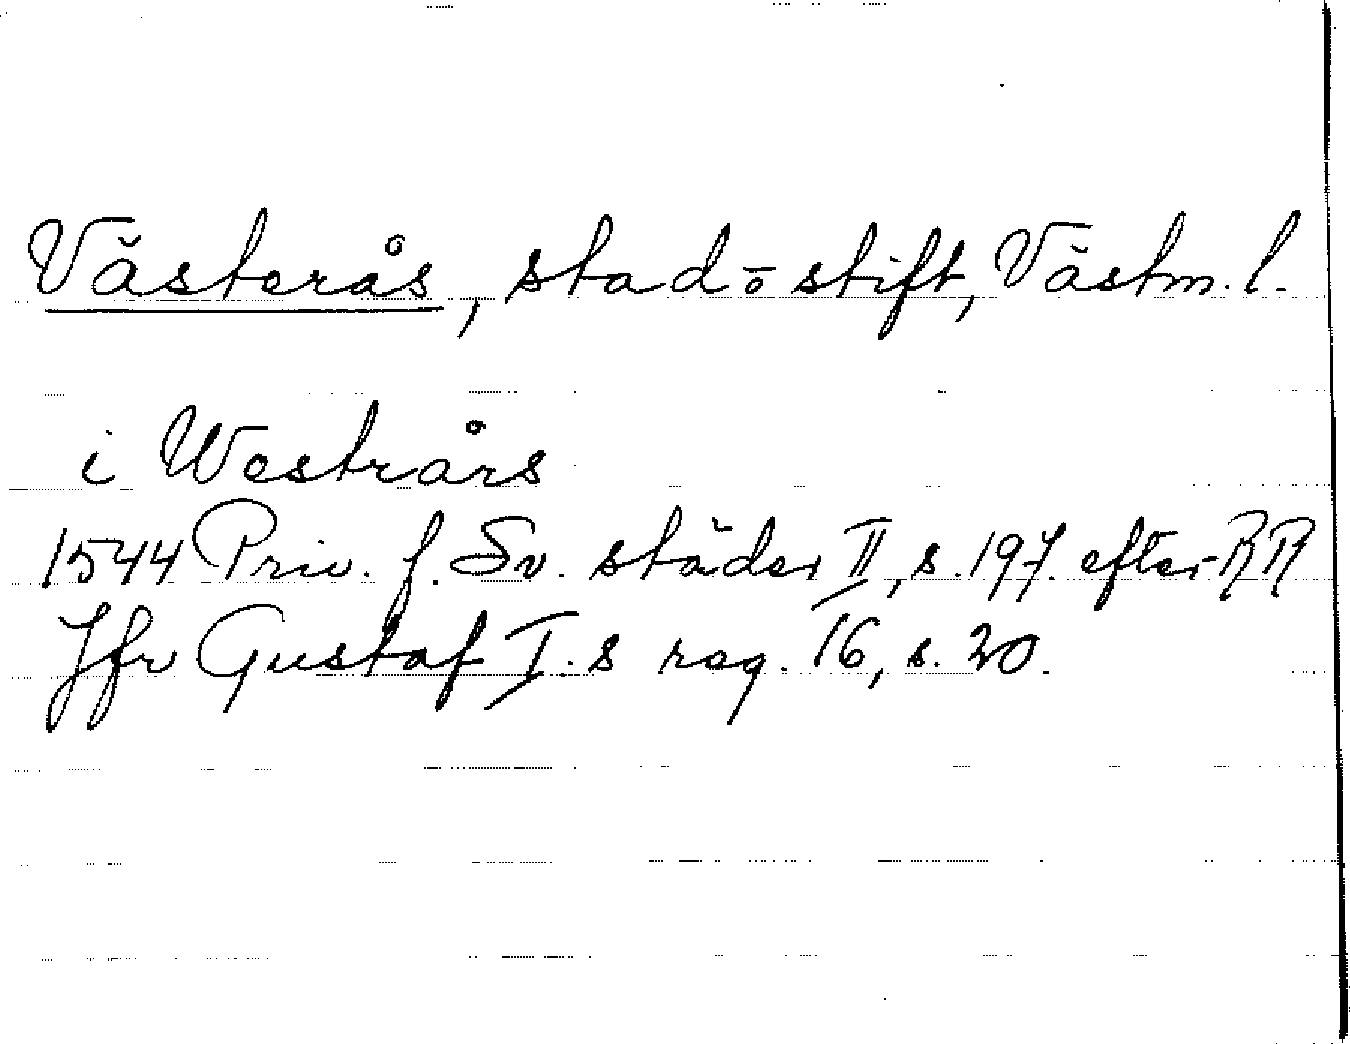 Västerås, stad o stift, Västm. l.
i Westrårs
1544 Priv. f. Sv. städer II, s. 197. efter RR
Jfr Gustaf I.s reg. 16, s. 20.